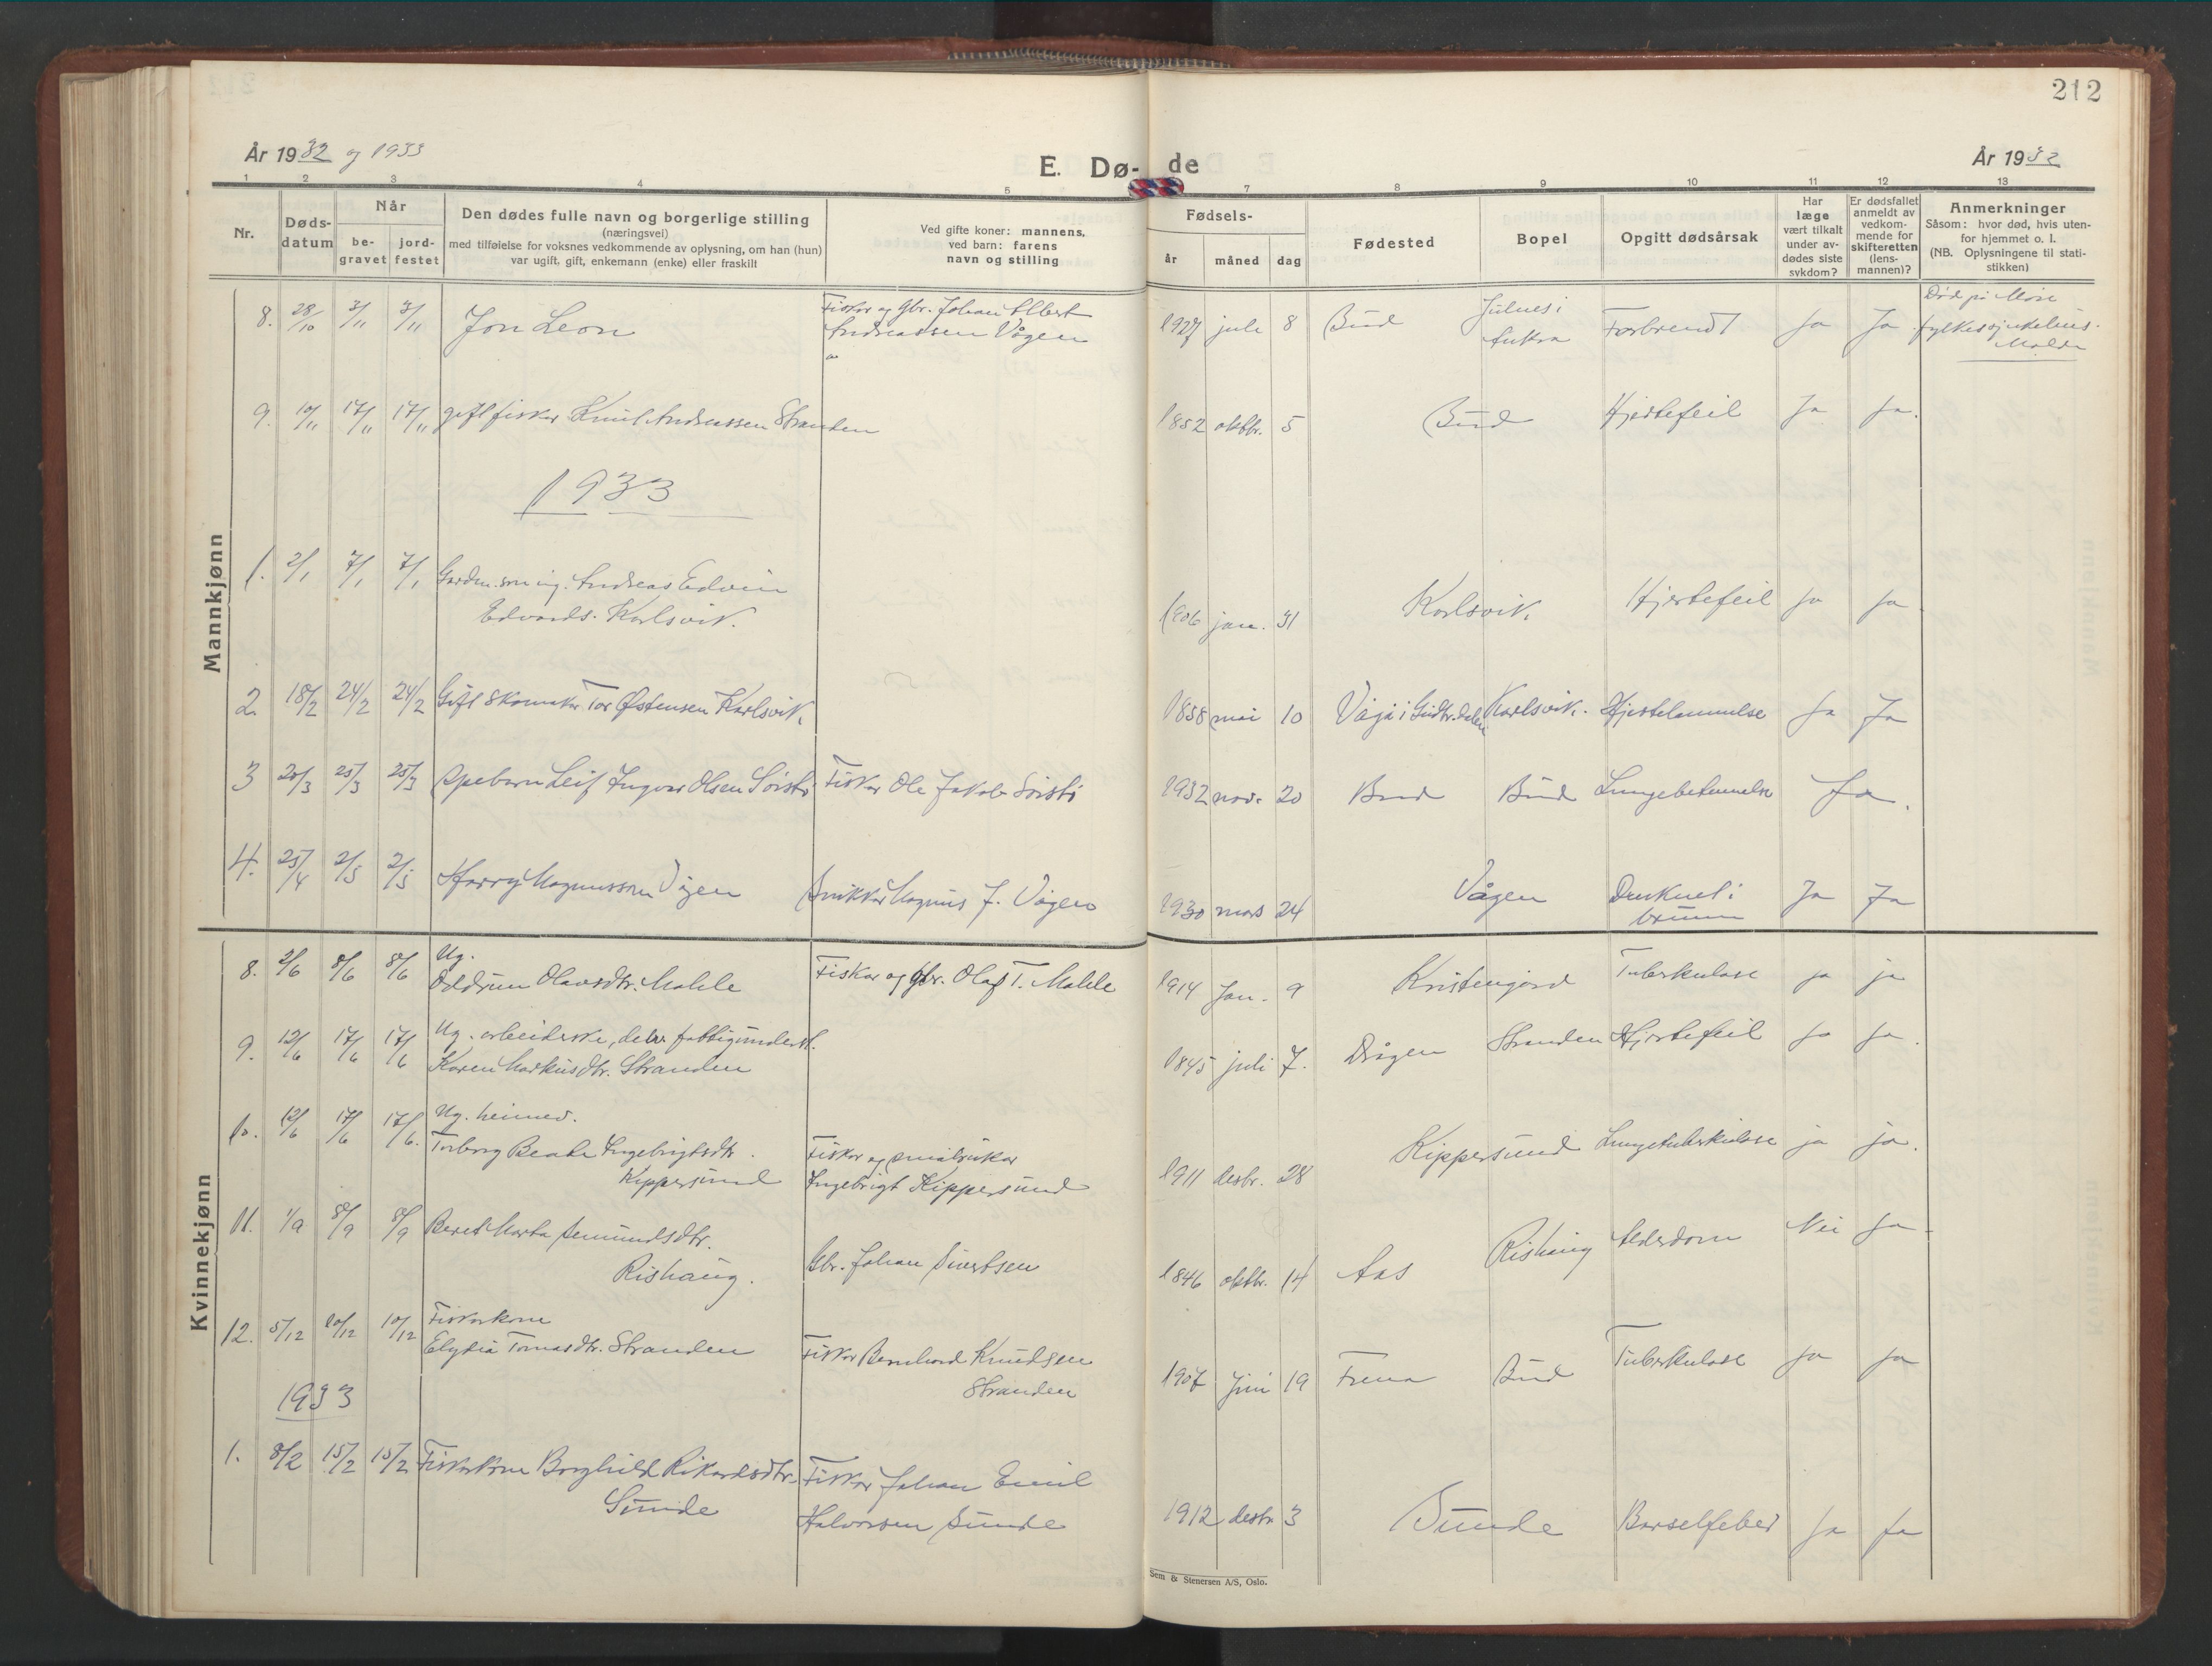 212
År 1932 og 1933
E. Dø-
de
År 1932
1 2 3 4 5 7 8 9 10 11 12 13
Nr.
Døds-
datum
Når
be-
gravet
jord-
festet
Den dødes fulle navn og borgerlige stilling
(næringsvei)
med tilføielse for voksnes vedkommende av oplysning, om han (hun)
var ugift, gift, enkemann (enke) eller fraskilt
Ved gifte koner: mannens,
ved barn: farens
navn og stilling
Fødsels-
år måned dag
Fødested
Bopel
Opgitt dødsårsak
Har
læge
vært tilkalt
under av-
dødes siste
sykdom?
Er dødsfallet
anmeldt av
vedkom-
mende for
skifteretten
(lens-
mannen)?
Anmerkninger
Såsom: hvor død, hvis uten-
for hjemmet o. l.
(NB. Oplysningene til stati-
stikken)
Mannkjønn
8. 28/10 3/11 3/11 Jon Leon
Fisker og Gbr. Johan Albert
Andreassen Vågen
1927 juli 8 Bud
Julnes i
Aukra
Forbrendt Ja Ja
Død på Møre
fylkessjukehus.
Molde
9. 10/11 17/11 17/11 gift fisker Knut Andreassen Stranden 1852 oktbr. 5 Bud Hjertefeil Ja Ja.
1933
1. 2/1 7/1 7/1 Gardm. søn ug. Andreas Edvin
Edvards. Karlsvik.
1906 jan. 31 Karlsvik. Hjertefeil Ja Ja
2. 18/2 24/2 24/2 Gift skomaker Tor Østensen Karlsvik. 1858 mai 10 Vågå i Gudbr.dalen Karlsvik. Hjertelammelse Ja Ja
3 20/3 25/3 25/3 Spebarn Leif Ingvar Olsen Sørstø Fisker Ole Jakob Sørstø 1932 novr 20 Bud Bud Lungebetennelse Ja.
4. 25/4 2/5 2/5 Harry Magnussen Vågen Snikker Magnus J. Vågen 1930 mars 24 Vågen Druknet i
brunn
Ja Ja
Kvinnekjønn
8. 2/6 8/6 8/6 Ug.
Oddrun Olavsdtr. Male Fisker og gbr. Olaf T. Male 1914 Jan. 9 Kristengjerd Tuberkulose ja ja
9. 12/6 17/6 17/6 Ug. arbeiderske, delv. fattigunderst.
Karen Markusdtr. Stranden 1845 juli 7. Drågen Stranden Hjertefeil Ja Ja.
10. 12/6 17/6 17/6. Ug. heimev.
Torborg Beate Ingebrigtsdtr.
Kippersund
Fisker og småbruker
Ingebrigt Kippersund
1911 desbr. 28 Kippersund Lungetuberkulose ja ja.
11. 1/9 8/9 8/9 Beret Marta Amundsdtr.
Rishaug.
Gbr. Johan Sivertsen 1846 oktbr. 14 Aas Rishaug Alderdom Nei Ja
12. 5/12 10/12 10/12 Fiskerkone
Elydia Tomasdtr. Stranden
Fisker Bernhard Knudsen
Stranden
1907 juni 19 Fræna Bud Tuberkulose Ja Ja
1933
1. 8/2 15/2 15/2 Fiskerkone Borghild Rikardsdtr.
Sunde
Fisker Johan Emil
Halvorsen Sunde
1912 desbr 3 Sunde Barselfeber Ja Ja
Sem & Stenersen A/S, Oslo.